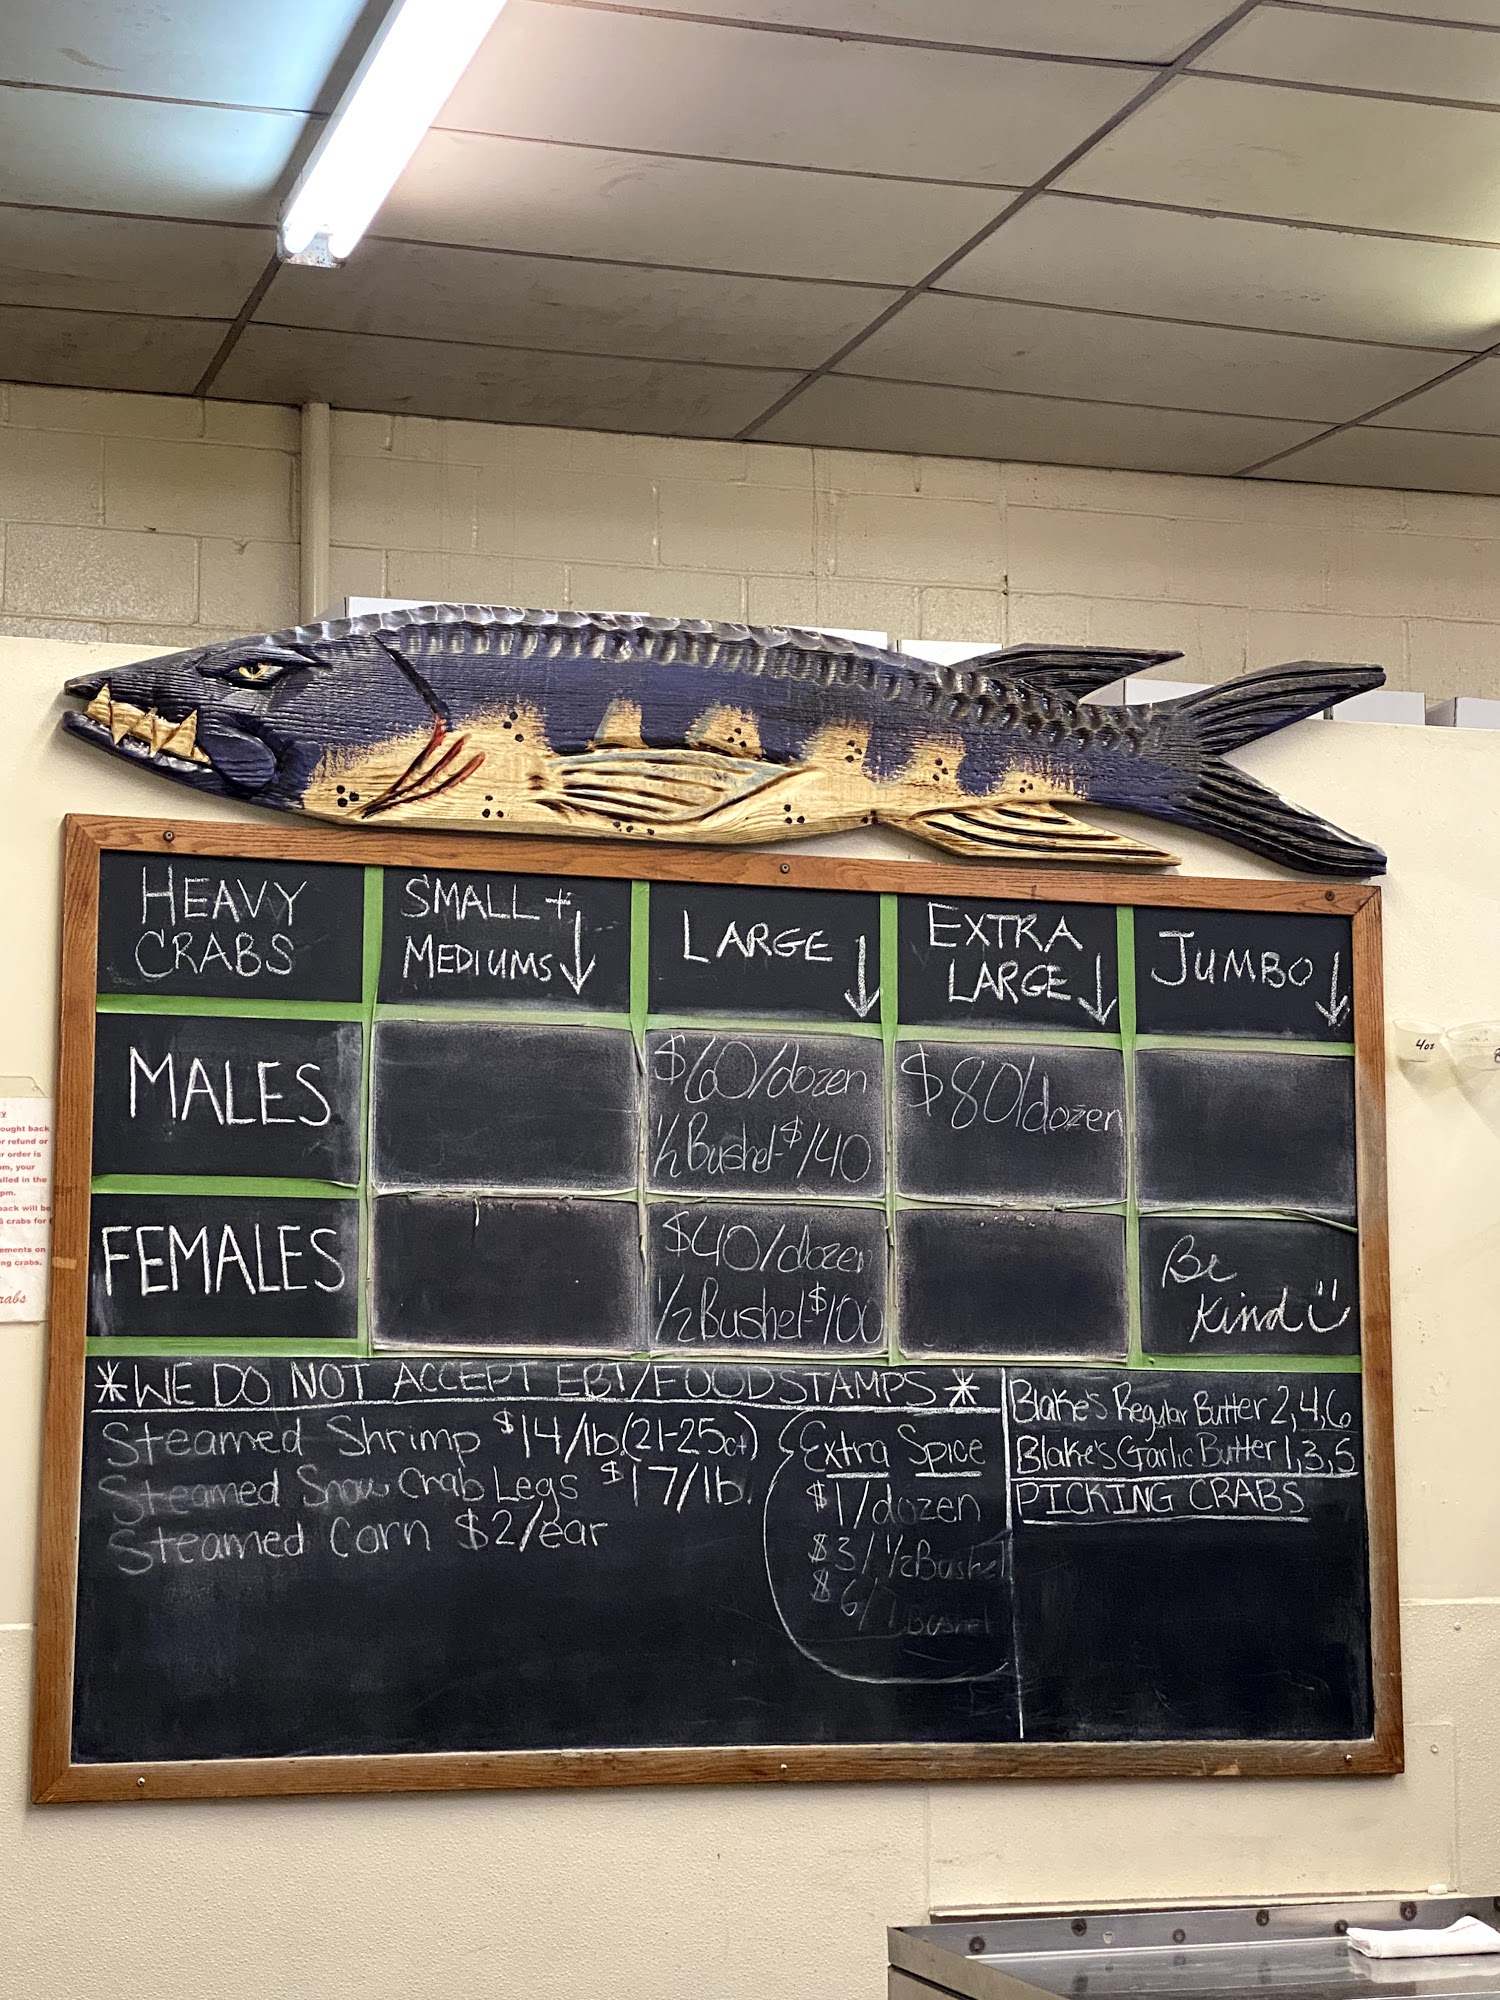 HEAVY
CRABS
SMALL +
MEDIUMS
LARGE
EXTRA
LARGE
JUMBO
MALES
$60/dozen
½ Bushel-$140
$80/dozen
FEMALES
$40/dozen
1/2 Bushel-$100
Be
Kind
*WE DO NOT ACCEPT EBT/FOODSTAMPS*
Steamed Shrimp $14/lb.(21-25ct)
Steamed Snow Crab Legs $17/lb.
Steamed Corn $2/ear
Extra Spice
$1/dozen
$3/ 1/2 Bushel
$6/1 Bushel
Blake's Regular Butter 2,4,6
Blake's Garlic Butter 1,3,5
PICKING CRABS
4oz
ought back
r refund or
r order is
om, your
lled in the
pm.
back will be
crabs for
ements on
ng crabs.
rabs